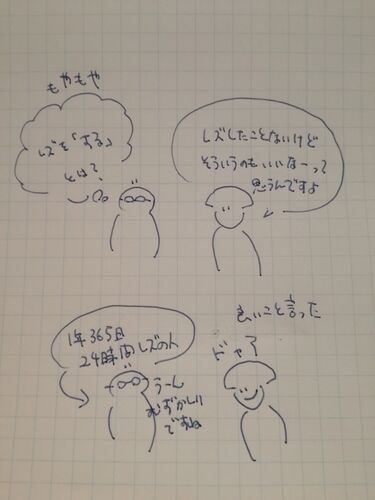 もやもや
レズを「する」
とは?
レズしたことないけど
そういうのもいいなーって
思うんですよ
1年365日
24時間レズの人
うーん
むずかしい
ですね
良いこと言った
ドャ?